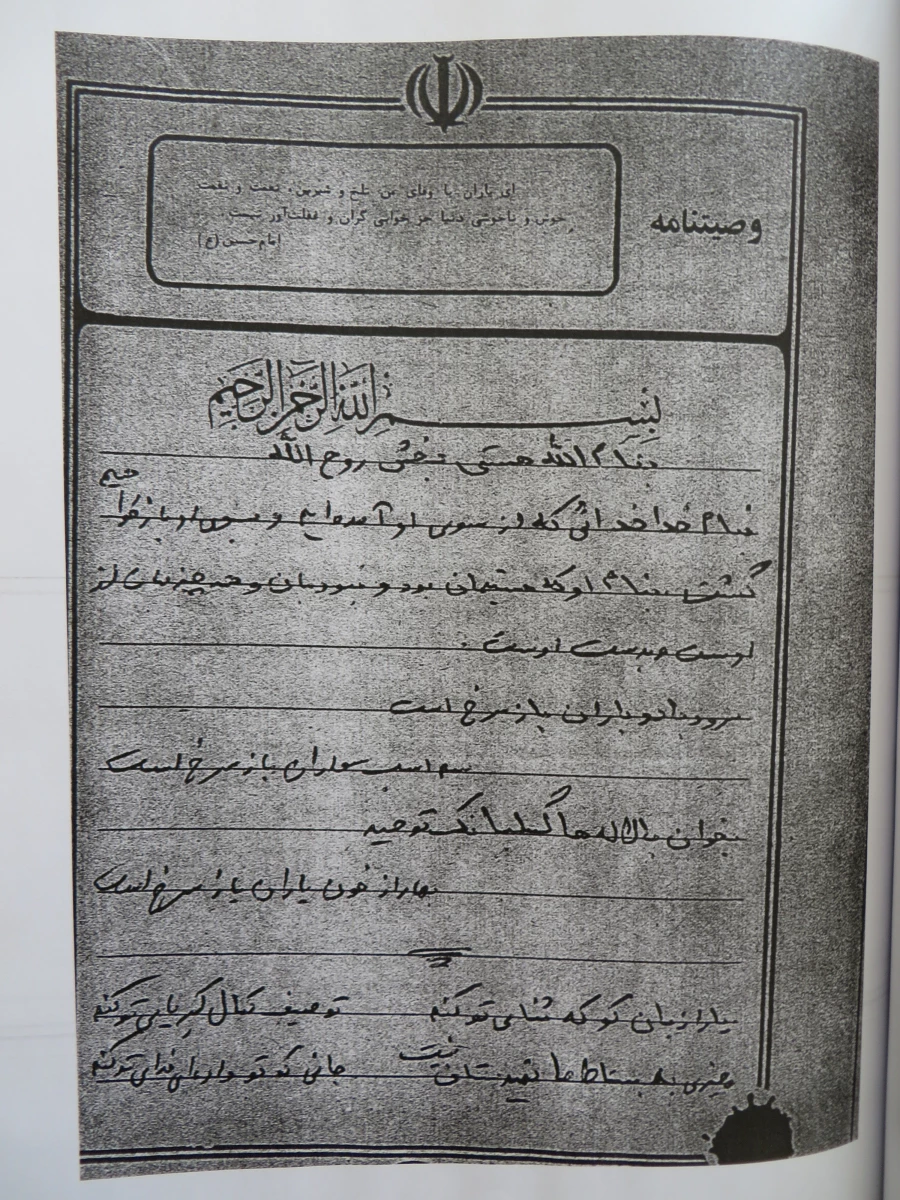 وصیتنامه
ای یاران با وفای من، تلخ و شیرین، نعمت و نقمت
خوش و ناخوشی دنیا جز خوابی گران و غفلت‌آور نیست.
امام حسین (ع)
بسم الله الرحمن الرحیم
بنام الله هستی بخش روح الله
بنام خدا خدائی که از سوی او آمده‌ایم و بسوی او باز خواهیم
گشت بنام او که هستیمان بود و نبودمان و همه چیزمان از
اوست و بدست اوست.
سرود باد و باران باز سرخ است
سم اسب سواران باز سرخ است
بخوان با لاله‌ها گلبانگ توحید
بهار از خون یاران باز سرخ است
یارا زبان کو که ثنای تو کنم توصیف کمال کبریایی تو کنم
چیزی به بساط ما تهیدستان نیست جانی که تو داده‌ای فدای تو کنم